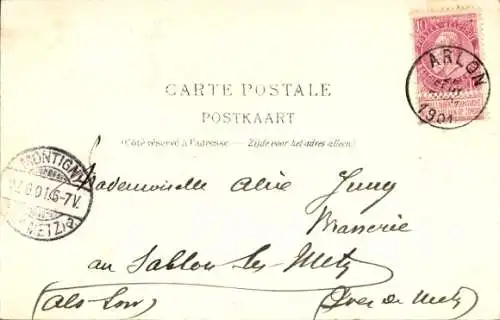 10
ARLON
1901
CARTE POSTALE
POSTKAART
(Côté réservé à l'adresse. — Zijde voor het adres alleen.)
MONTIGNY
.6.01.6-7V.
(METZ) a.
Mademoiselle Alice Jung
Brasserie
au Sablon les-Metz
(Als-Lor) (Près de Metz)